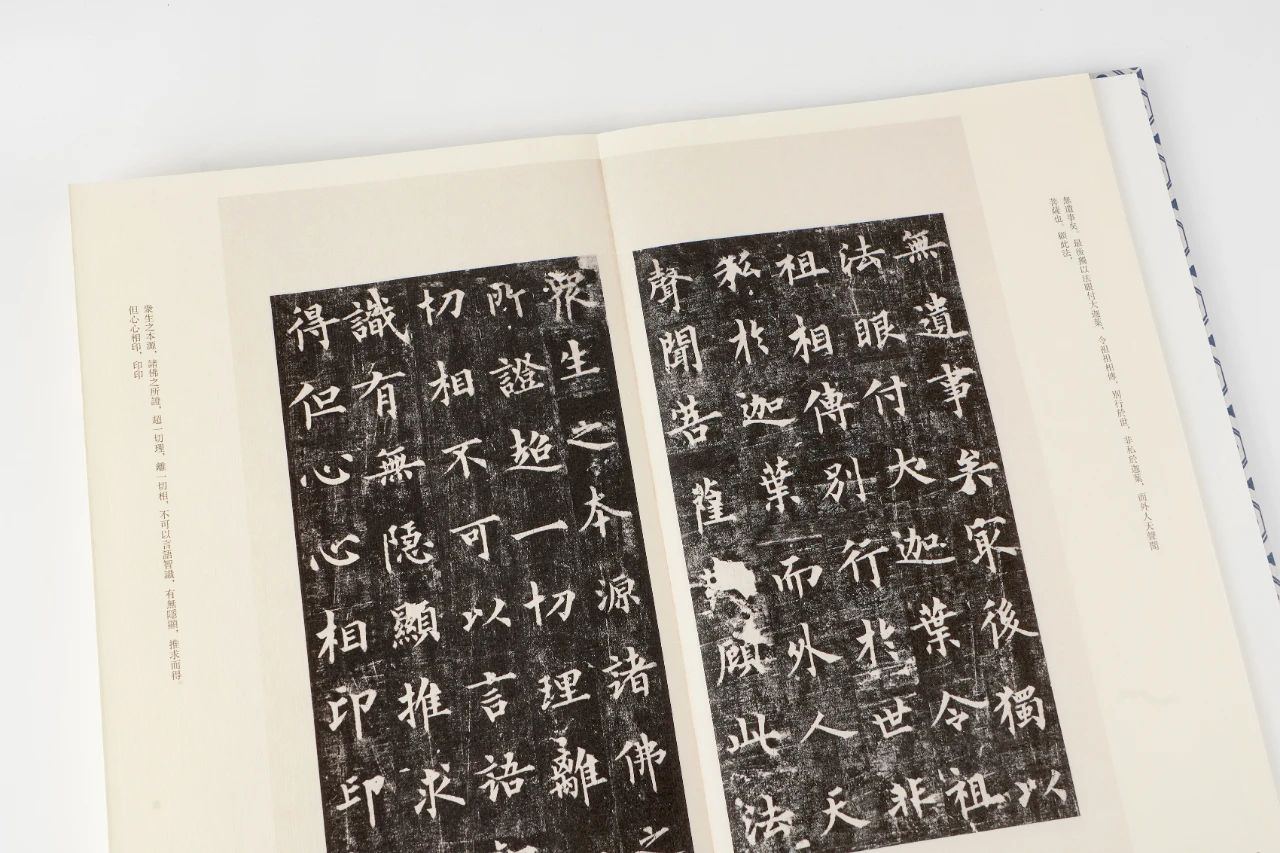 無遺事矣。最後獨以法眼付大迦葉，令祖祖相傳，別行於世。非私於迦葉，而外人天聲聞
菩薩也。顧此法，
無遺事矣冣後獨以
法眼付大迦葉令祖
祖相傳別行扵世非
私扵迦葉而外人天
聲聞菩薩顧此法
眾生之本源諸佛之
所證超一切理離
切相不可以言語
識有無隱顯推求
得但心心相印印
眾生之本源，諸佛之所證，超一切理，離一切相，不可以言語智識，有無隱顯，推求而得。
但心心相印，印印